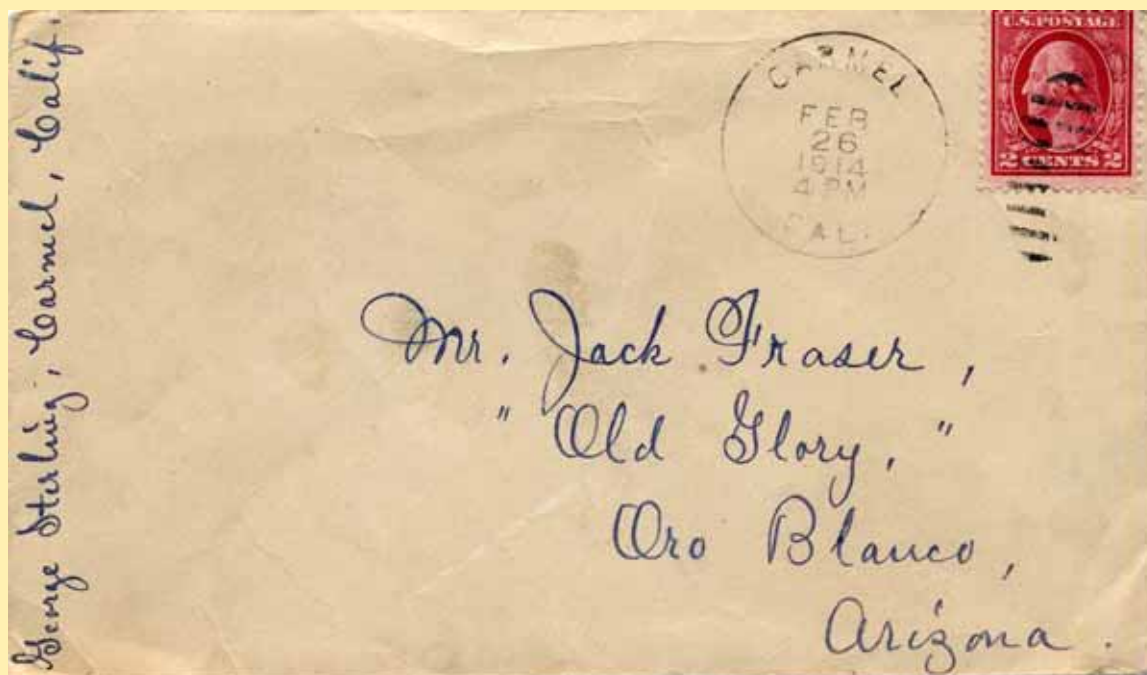 George Sterling, Carmel, Calif.
CARMEL
FEB
26
1914
4 PM
CAL.
U.S. POSTAGE
2 CENTS 2
Mr. Jack Fraser,
"Old Glory,"
Oro Blanco,
Arizona.